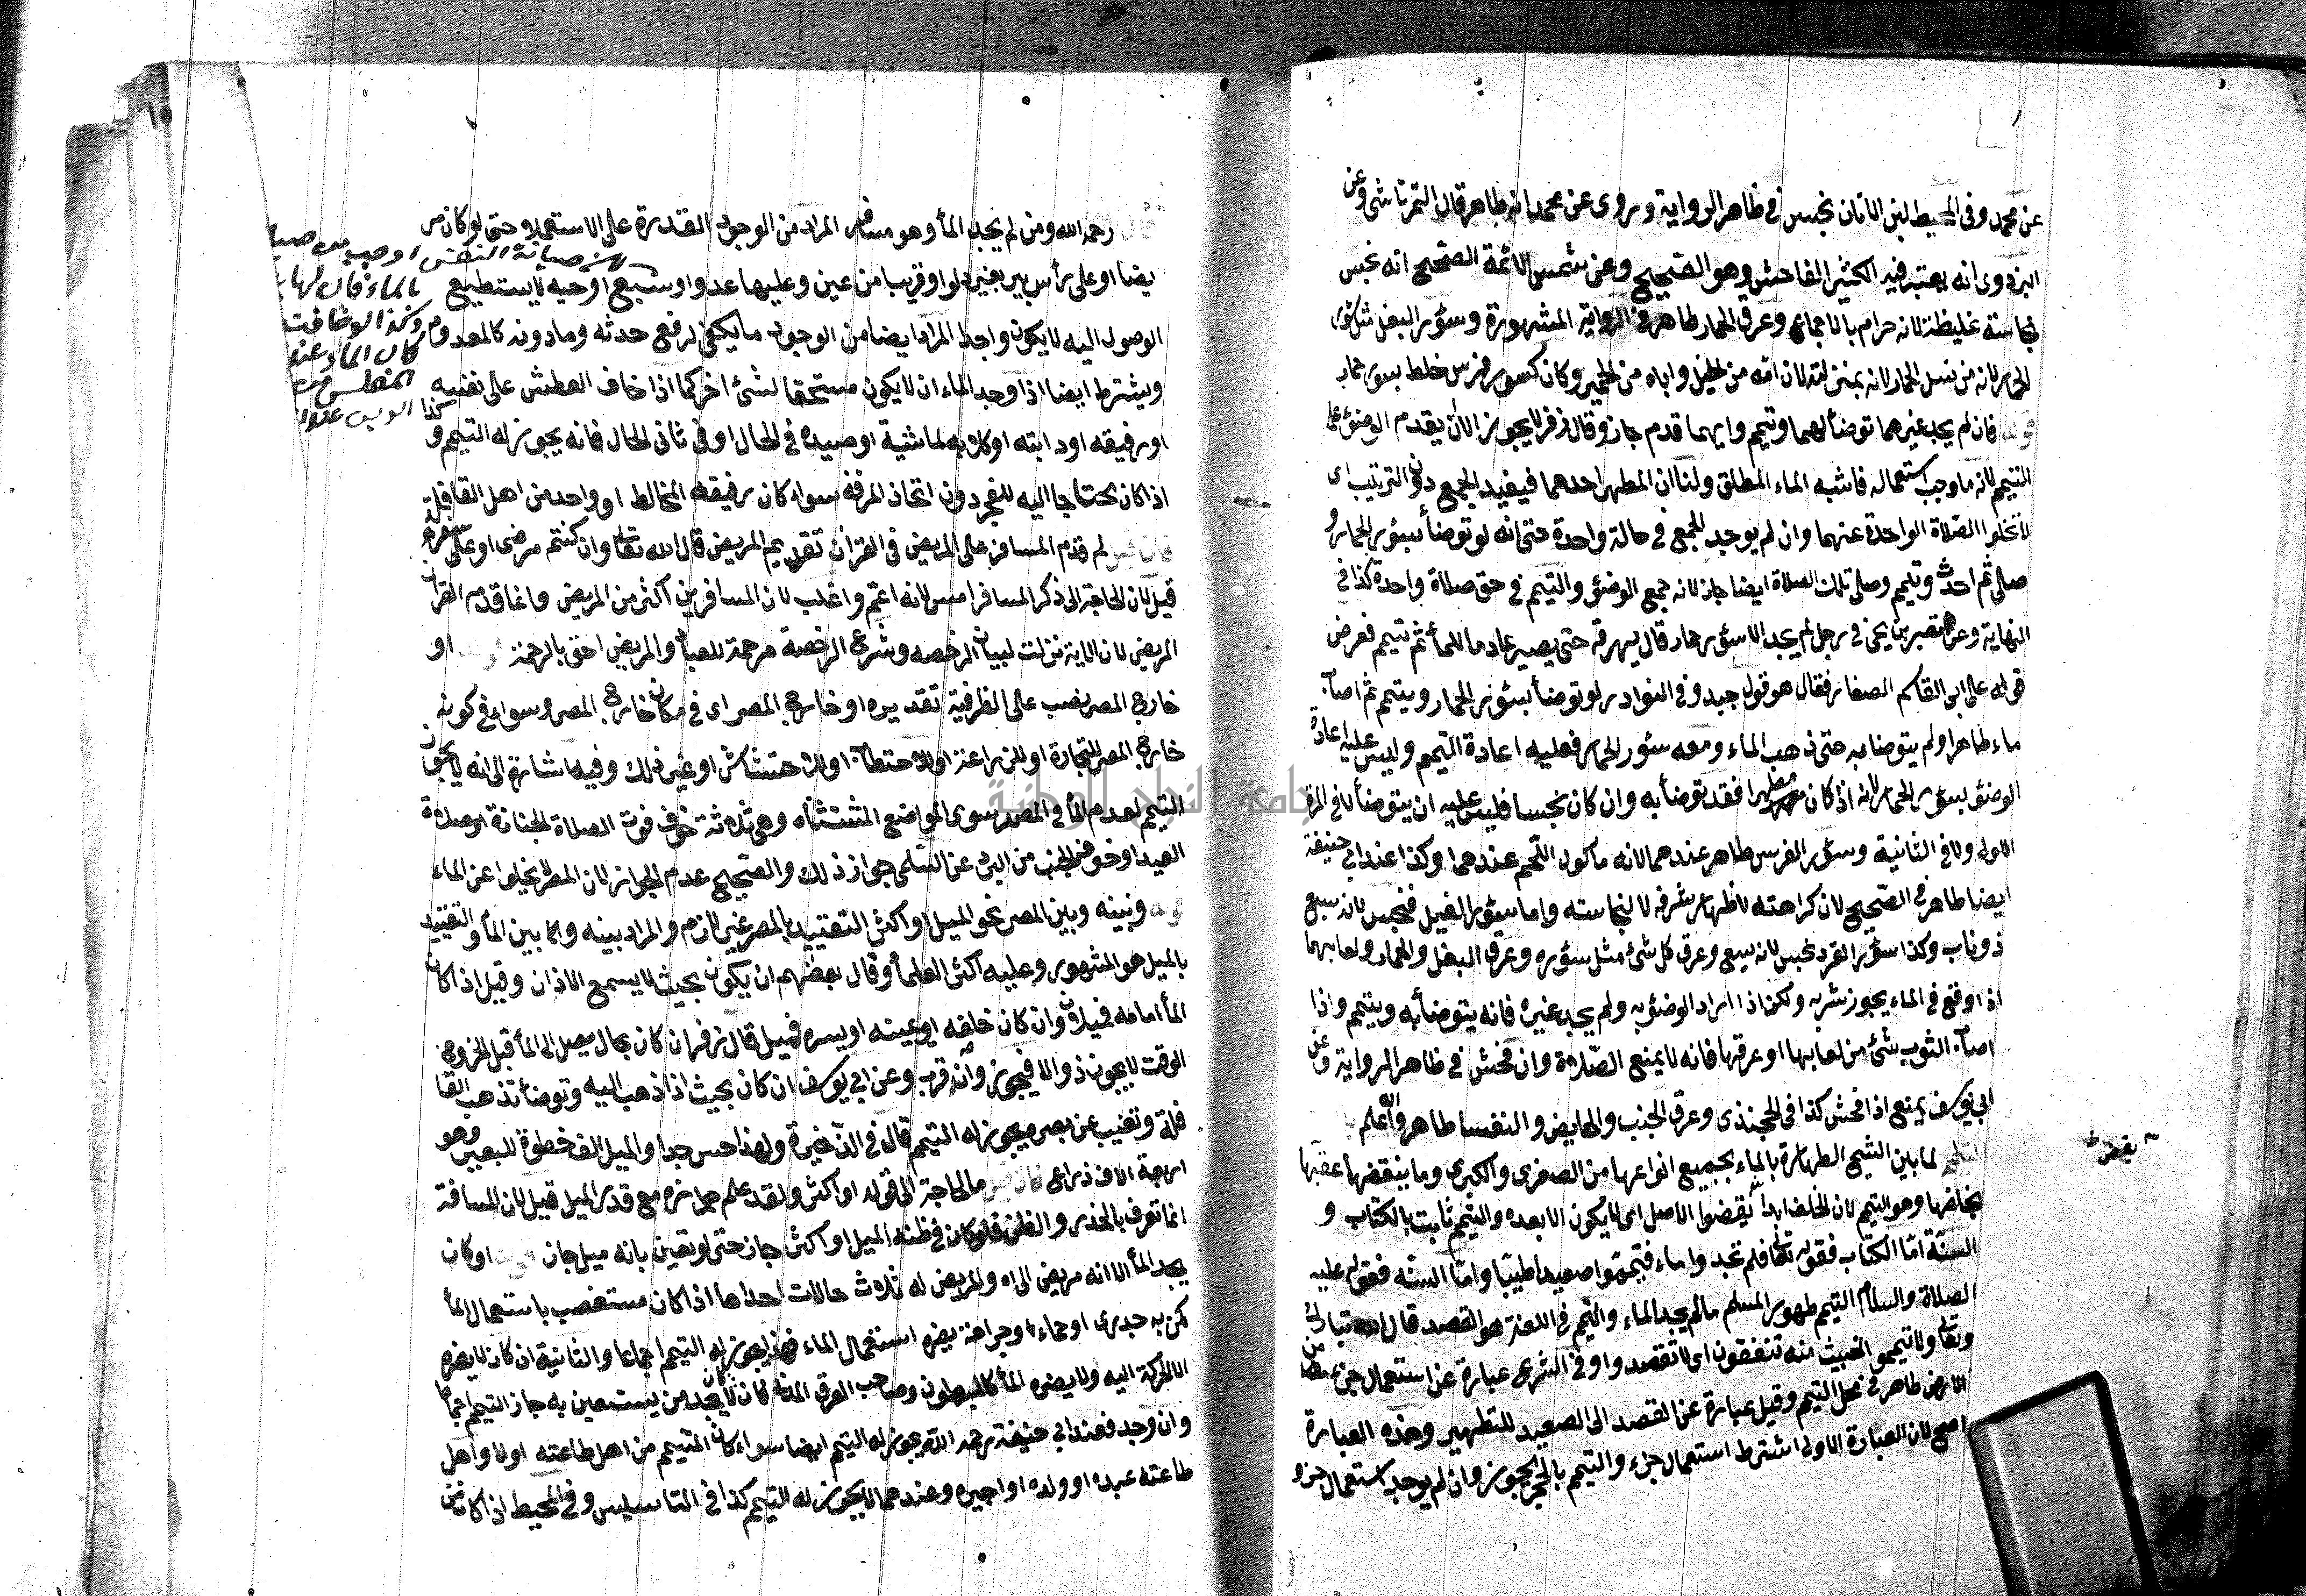 عن محمد وفى المحيط لبن الاتان نجس فى ظاهر الرواية وروى عن محمد انه طاهر قال التمرتاشى وعن
البزدوى انه يعتبر فيه الكثير الفاحش وهو الصحيح وعن شمس الائمة الصحيح انه نجس
نجاسته غليظة لانه حرام بالاجماع وعرق الحمار طاهر فى الرواية المشهورة وسؤر البغل مثل سؤر
الحمار لانه من نسل الحمار لانه بمنزلته لان امه من الخيل واباه من الحمير وكان كسور فرس خلط بسور حمار
فان لم يجد غيرهما توضأ بهما وتيمم وايهما قدم جاز وقال زفر لا يجوز الا ان يقدم الوضئ على
التيمم لانه ما وجب استعماله فاشبه الماء المطلق ولنا ان المطهر احدهما فيفيد الجمع دون الترتيب اى
لا تخلوا الصلاة الواحدة عنهما وان لم يوجد الجمع فى حالة واحدة حتى انه لو توضأ بسؤر الحمار و
صلى ثم احدث وتيمم وصلى تلك الصلاة ايضا جاز لانه جمع الوضئ والتيمم فى حق صلاة واحدة كذا فى
النهاية وعن نصير بن يحى فى رجل لم يجد الا سؤر حمار قال يهرقه حتى يصير عادما للمأ ثم تيمم فعرض
قوله على ابى القاسم الصفار فقال هو قول جيد وفى النوادر لو توضأ بسؤر الحمار وتيمم ثم اصاب
ماء طاهرا ولم يتوضا به حتى ذهب الماء ومعه سئور الحمار فعليه اعادة التيمم وليس عليه اعادة
الوضئ بسؤر الحمار لانه اذ كان مطهرا فقد توضأ به وان كان نجسا فليس عليه ان يتوضأ لا فى المرة
الاولى ولا فى الثانية وسؤر الفرس طاهر عندهما لانه ماكول اللحم عندهما وكذا عند ابى حنيفة
ايضا طاهر فى الصحيح لان كراهته لاظهار شرفه لا لنجاسته واما سؤر الفيل فنجس لانه سبع
ذو ناب وكذا سؤر القرد نجس لانه سبع وعرق كل شئ مثل سؤره وعرق البغل والحمار ولعابهما
اذا وقع فى الماء يجوز شربه ولكن اذا اراد الوضؤ به ولم يجد غيره فانه يتوضأ به ويتيمم واذا
اصاب الثوب شئ من لعابها او عرقها فانه لا يمنع الصلاة وان فحش فى ظاهر الرواية وعن
ابى يوسف يمنع اذا فحش كذا فى الخجندى وعرق الجنب والحايض والنفسا طاهر والله اعلم
لما بين الشيخ الطهارة بالماء بجميع انواعها من الصغرى والكبرى وما ينقضها عقبها
بخلفها وهو التيمم لان الخلف ابدا يقضوا الاصل اى لا يكون الا بعده والتيمم ثابت بالكتاب و
السنة اما الكتاب فقوله تعالى فلم تجدوا ماء فتيمموا صعيدا طيبا واما السنه فقوله عليه
الصلاة والسلام التيمم طهور المسلم مالم يجد الماء والتيمم فى اللغة هو القصد قال الله تبارك
وتعالى ولا تيمموا الخبيث منه تنفقون اى لا تقصدوا وفى الشرع عبارة عن استعمال جزء من
الارض طاهر فى محل التيمم وقيل عبارة عن القصد الى الصعيد للتطهير وهذه العبارة
اصح لان العبارة الاولى اشترط استعمال جزء والتيمم بالحجر يجوز وان لم يوجد استعمال جزو
يقفو
رحمه الله ومن لم يجد المأ وهو مسافر المراد من الوجود القدرة على الاستعمال حتى لو كان مر
يضا او على رأس بير بغير دلوا وقريبا من عين وعليها عدو او سبع او حيه لا يستطيع
الوصول اليه لا يكون واجدا المراد ايضا من الوجود ما يكفى لرفع حدثه ومادونه كالمعدوم
ويشترط ايضا اذا وجد الماء ان لا يكون مستحقا لشئ اخر كما اذا خاف العطش على نفسه
او رفيقه او دابته او كلابه لماشية او صيده فى الحال او فى ثانى الحال فانه يجوز له التيمم و
اذا كان محتاجا اليه للعجن دون اتخاذ المرقة سواء كان رفيقه المخالط او واحد من اهل القافلة
لم قدم المسافر على المريض فى القران تقديم المريض قال الله تعالى وان كنتم مرضى او على سفر
قيل لان الحاجة الى ذكر المسافر امس لانه اعم واغلب لان المسافرين اكثر من المريض وانما قدم القران
المريض لان الاية نزلت لبيان الرخصه وشرع الرخصة مرحمة للعباد والمريض احق بالرحمة او
خارج المصر نصب على الظرفية تقديره او خارج المصر اى فى مكان خارج المصر وسواء فى كونه
خارج المصر للتجارة او للزراعة او للاحتطاب او للاحتشاش او غير ذلك وفيه اشارة الى انه لا يجوز
التيمم لعدم المأ فى المصر سوى المواضع المستثناه وهى ثلاثة خوف فوت الصلاة الجنازة او صلاة
العيد او خوف الجنب من البرد عن السلمى جواز ذلك والصحيح عدم الجواز لان المصر لا يخلوا عن الماء
وبينه وبين المصر نحو الميل او اكثر التقييد بالمصر غير لازم والمراد بينه وبين المأ والتقييد
بالميل هو المشهور وعليه اكثر العلمأ وقال بعضهم ان يكون بحيث لا يسمع الاذان وقيل اذا كان
المأ امامه فميلان وان كان خلفه او يمينه او يسره فميل قال زفر ان كان بحال يصل الى المأ قبل الخروج
الوقت لا يجوز والا فيجوز وان قرب وعن ابى يوسف ان كان بحيث اذا ذهب اليه وتوضأ تذهب القا
فلة وتغيب عن بصره يجوز له التيمم قال فى الذخيرة ولهذا حسن جدا والميل الف خطوة للبعير وهو
اربعة الاف ذراع ما الحاجة الى قوله او اكثر ولقد علم جوازه مع قدر الميل قيل لان المسافة
انما تعرف بالحذر والظن فلو كان فى ظنه الميل او اكثر جاز حتى لو تعين بانه ميل جاز او كان
يجد المأ الا انه مريض الى اه والمريض له ثلاث حالات احداها اذا كان مستغصب باستعمال المأ
كمن به جدرى او حماء او جراحة يضره استعمال الماء فهذا يجوز له التيمم اجماعا والثانية ان كان لا يضره
الا الحركة اليه ولا يضره المأ كالمبطون وصاحب العرق المدنى فان كان لا يجد من يستعين به جاز التيمم اجماعا
وان وجد فعند ابى حنيفة رحمه الله يجوز له التيمم ايضا سواء كان المتيمم من اهل طاعته او لا واهل
طاعته عبده او ولده او اجيره وعندهما لا يجوز له التيمم كذا فى التاسيس وفى المحيط اذا كان من
لان صيانة النفس اوجب من صيا
بالماء فان لها
وكذا لو خافت
كان الماء عند